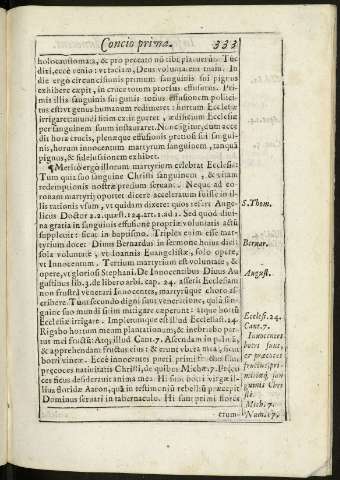 Concio prima. 333
holocautomata, & pro peccato nõ tibi placuerũt. Tũc
dixi, ecce venio: vt faciam, Deus voluntatem tuam. In
die ergo circuncisionis primum sanguinis sui pignus
exhibere cæpit, in cruce totum pretosius effusurus. Pri
mis illis sanguinis sui guttis totius effusionem pollici
tus est vt genus humanum redimeret: hortum Ecclesiæ
irrigaret: mundi sitim extingueret, & discutum Ecclesiæ
per sanguinem suum instauraret. Non igitur, cum acce
dit hora crucis, plenæque effusionis pretiosi sui sangui-
nis, horum innocentum martyrum sanguinem, tanquã
pignus, & fideiussionem exhibet.
¶ Merito ergo illorum martyrium celebrat Ecclesia:
Tum quia suo sanguine Christi sanguinem, & vitam
redemptionis nostræ pretium seruant. Neque ad co-
ronam martyrij oportet dicere acceleratum fuisse in
illis rationis vsum, vt quidam dixere: quos refert Ange-
licus Doctor 2.2.quæst.124.art.1.ad 1. Sed quod diui-
na gratia in sanguinis effusione propriæ voluntatis actũ
suppleuit: sicut in baptismo. Triplex enim esse mar-
tyrium docet Diuus Bernardus in sermone huius diei:
sola voluntate, vt Ioannis Euangelistæ, solo opere,
vt Innocentum. Tertium martyrium est voluntate, &
opere, vt gloriosi Stephani. De Innocentibus Diuus Au
gustinus lib.3.de libero arbi. cap. 24. asserit Ecclesiam
non frustrà venerari Innocentes, martyrũque choro as-
cribere. Tum secundo digni sunt veneratione, quia san-
guine suo mundi sitim mitigare cæperunt: atque hortũ
Ecclesiæ irrigare. Impletumque est illud Ecclesiast.24.
Rigabo hortum meum plantationum, & inebriabo par-
tus mei fructũ: Atq; illud Cant.7. Ascendam in palmã,
& apprehendam fructus eius: & erunt vbera tua, sicut
botri vineæ. Ecce innocentes pueri primi fructus sunt
præcoces natiuitatis Christi, de quibus Micheæ 7. Præco
ces ficus desiderauit anima mea. Hi sunt botri virgæ il-
lius floridæ Aaron, quã in testimoniũ rebelliũ præcepit
Dominus seruari in tabernaculo. Hi sunt primi flores
crum-
S. Thom.
Bernar.
August.
Ecclesi.24.
Cant.7.
Innocentes
botri sunt,
et præcoces
fructus, pri-
mitiæq; san
guinis Chri
sti.
Mich. 7.
Num.17.